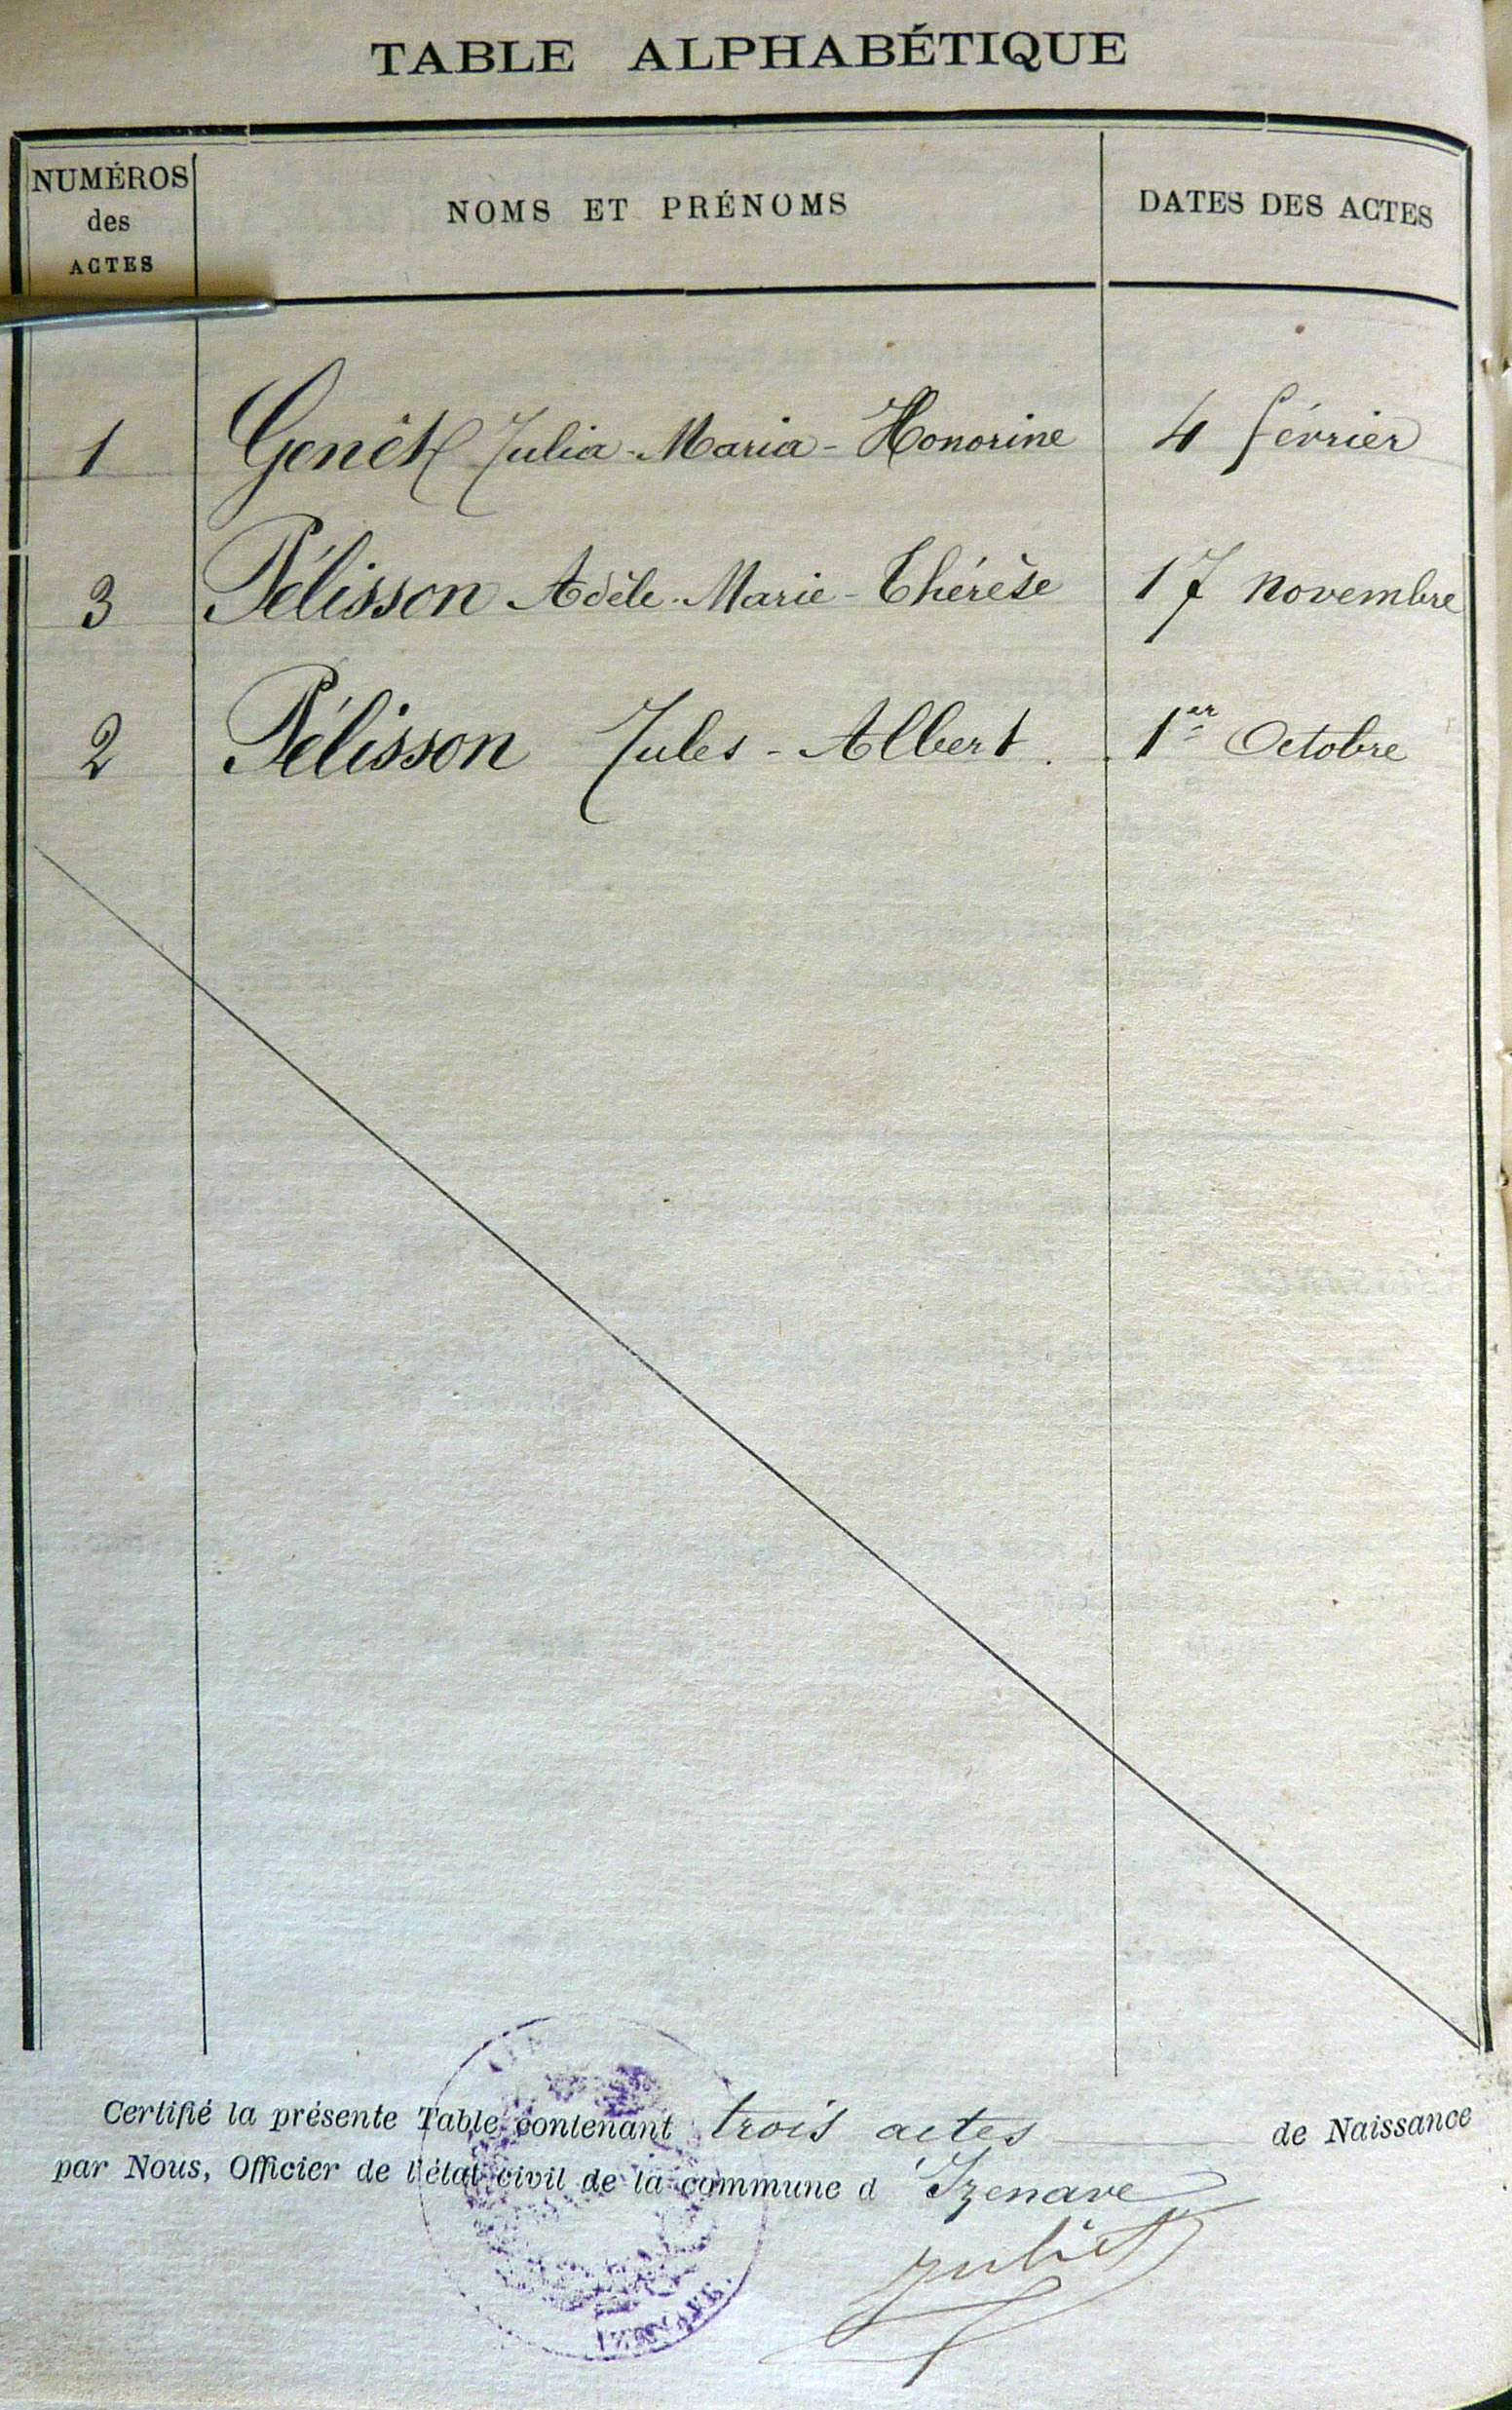 TABLE ALPHABÉTIQUE
NUMÉROS
des
ACTES
NOMS ET PRÉNOMS
DATES DES ACTES
1 Genêt Julia-Maria-Honorine 4 février
3 Pélisson Adèle-Marie-Thérèse 17 novembre
2 Pélisson Jules-Albert. 1er Octobre
Certifié la présente Table contenant trois actes de Naissance
par Nous, Officier de l'état civil de la commune d'Izenave
Juliet
IZENAVE